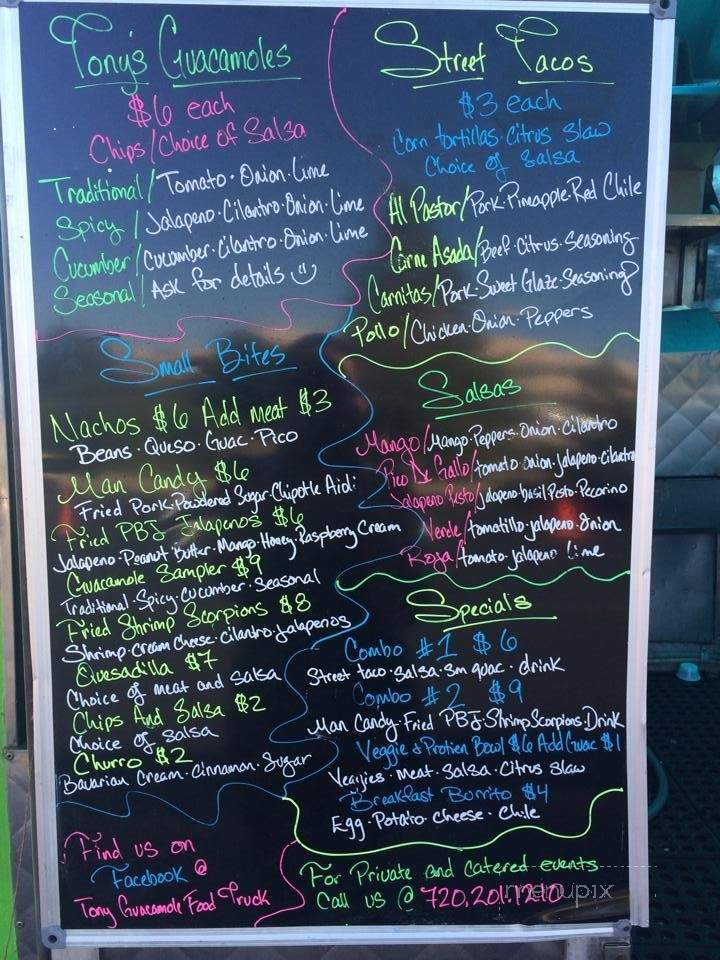 Tony's Guacamoles
$6 each
Chips/Choice of Salsa
Traditional/Tomato·Onion·Lime
Spicy/Jalapeno·Cilantro·Onion·Lime
Cucumber/Cucumber·Cilantro·Onion·Lime
Seasonal/Ask for details
Small Bites
Nachos $6 Add meat $3
Beans·Queso·Guac·Pico
Man Candy $6
Fried Pork·Powdered Sugar·Chipotle Aioli
Fried PBJ Jalapenos $6
Jalapeno·Peanut Butter·Mango·Honey·Raspberry Cream
Guacamole Sampler $9
Traditional·Spicy·Cucumber·Seasonal
Fried Shrimp Scorpions $8
Shrimp·Cream Cheese·Cilantro·Jalapenos
Quesadilla $7
Choice of meat and salsa
Chips And Salsa $2
Choice of Salsa
Churro $2
Bavarian Cream·Cinnamon·Sugar
Find us on
Facebook @
Tony Guacamole Food Truck
Street Tacos
$3 each
Corn tortillas·Citrus Slaw
Choice of Salsa
Al Pastor/Pork·Pineapple·Red Chile
Carne Asada/Beef·Citrus·Seasoning
Carnitas/Pork·Sweet Glaze·Seasoning
Pollo/Chicken·Onion·Peppers
Salsas
Mango/Mango·Peppers·Onion·Cilantro
Pico De Gallo/tomato·onion·jalapeno·cilantro
Jalapeno Pesto/jalapeno·basil Pesto·Pecorino
Verde/tomatillo·jalapeno·Onion
Roja/tomato·jalapeno·Lime
Specials
Combo #1 $6
Street taco·Salsa·sm guac·drink
Combo #2 $9
Man Candy·Fried PBJ·Shrimp Scorpions·Drink
Veggie & Protien Bowl $6 Add Guac $1
Veggies·Meat·Salsa·Citrus Slaw
Breakfast Burrito $4
Egg·Potato·Cheese·Chile
For Private and catered events
Call us @ 720.201.1210
menupix